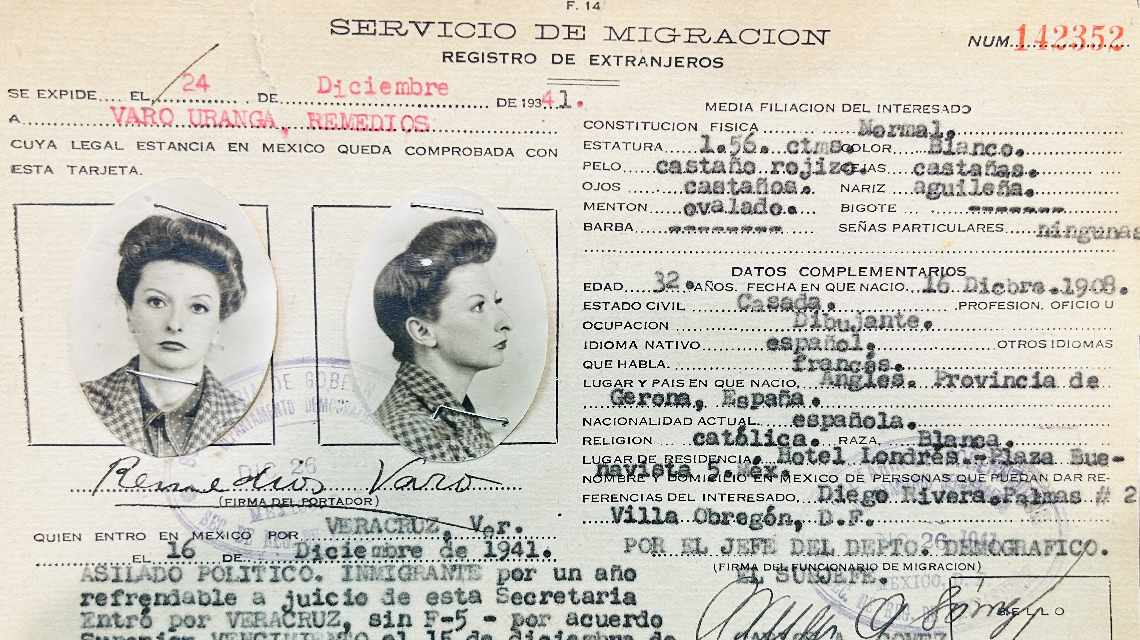 F. 14
SERVICIO DE MIGRACION
REGISTRO DE EXTRANJEROS
NUM. 142352
SE EXPIDE EL 24 DE Diciembre DE 1941.
A VARO URANGA, REMEDIOS
CUYA LEGAL ESTANCIA EN MEXICO QUEDA COMPROBADA CON
ESTA TARJETA.
Remedios Varo
(FIRMA DEL PORTADOR)
QUIEN ENTRO EN MEXICO POR VERACRUZ, Ver.
EL 16 DE Diciembre de 1941.
ASILADO POLITICO. INMIGRANTE por un año
refrendable a juicio de esta Secretaria
Entró por VERACRUZ, sin F-5 - por acuerdo
Superior VENCIMIENTO el 15 de diciembre de
MEDIA FILIACION DEL INTERESADO
CONSTITUCION FISICA Normal.
ESTATURA 1.56. ctms. COLOR Blanco.
PELO castaño rojizo. CEJAS castañas.
OJOS castaños. NARIZ aguileña.
MENTON ovalado. BIGOTE --------
BARBA --------- SEÑAS PARTICULARES ningunas
DATOS COMPLEMENTARIOS
EDAD 32. AÑOS. FECHA EN QUE NACIO. 16 Dicbre. 1908.
ESTADO CIVIL Casada. PROFESION, OFICIO U
OCUPACION Dibujante.
IDIOMA NATIVO español. OTROS IDIOMAS
QUE HABLA. francés.
LUGAR Y PAIS EN QUE NACIO. Angles. Provincia de
Gerona, España.
NACIONALIDAD ACTUAL. española.
RELIGION católica. RAZA. Blanca.
LUGAR DE RESIDENCIA. Hotel Londres.-Plaza Bue-
navista 5. Mex.
NOMBRE Y DOMICILIO EN MEXICO DE PERSONAS QUE PUEDAN DAR RE-
FERENCIAS DEL INTERESADO. Diego Rivera. Palmas # 2
Villa Obregón, D.F.
POR EL JEFE DEL DEPTO. DEMOGRAFICO.
(FIRMA DEL FUNCIONARIO DE MIGRACION)
EL SUBJEFE.
SELLO